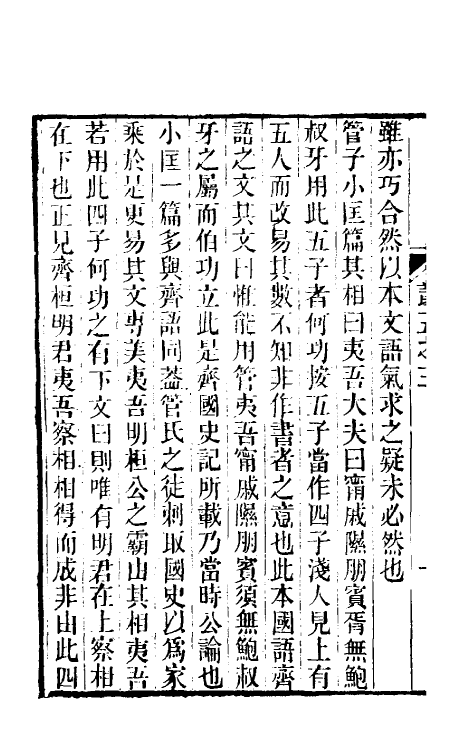 雖亦巧合然以本文語氣求之疑未必然也
管子小匡篇其相曰夷吾大夫曰甯戚隰朋賓胥無鮑
叔牙用此五子者何功按五子當作四子淺人見上有
五人而改易其數不知非作書者之意也此本國語齊
語之文其文曰惟能用管夷吾甯戚隰朋賓須無鮑叔
牙之屬而伯功立此是齊國史記所載乃當時公論也
小匡一篇多與齊語同葢管氏之徒刺取國史以爲家
乘於是更易其文專美夷吾明桓公之霸由其相夷吾
若用此四子何功之有下文曰則唯有明君在上察相
在下也正見齊桓明君夷吾察相相得而成非由此四